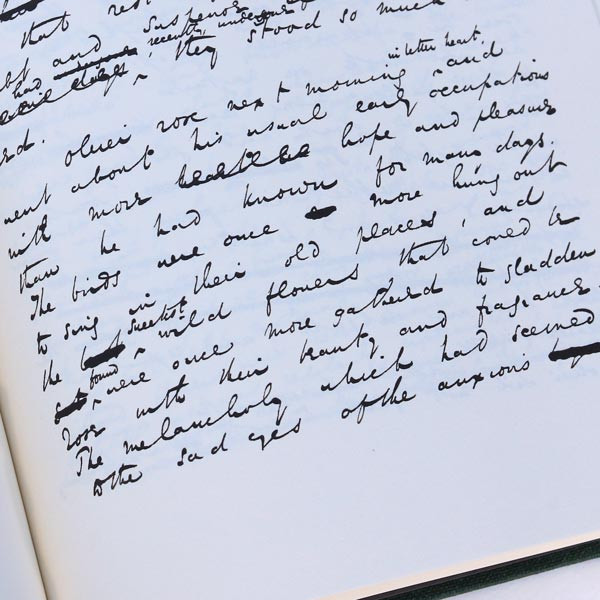 that
and suspense recently undergone
had they stood so much
in better heart,
Oliver rose next morning and
went about his usual early occupations
with more hope and pleasure
than he had known for many days.
The birds were once more hung out
to sing in their old places, and
sweetest
the wild flowers that could be
found
were once more gathered to gladden
rose with their beauty and fragrance.
The melancholy which had seemed
to the sad eyes of the anxious